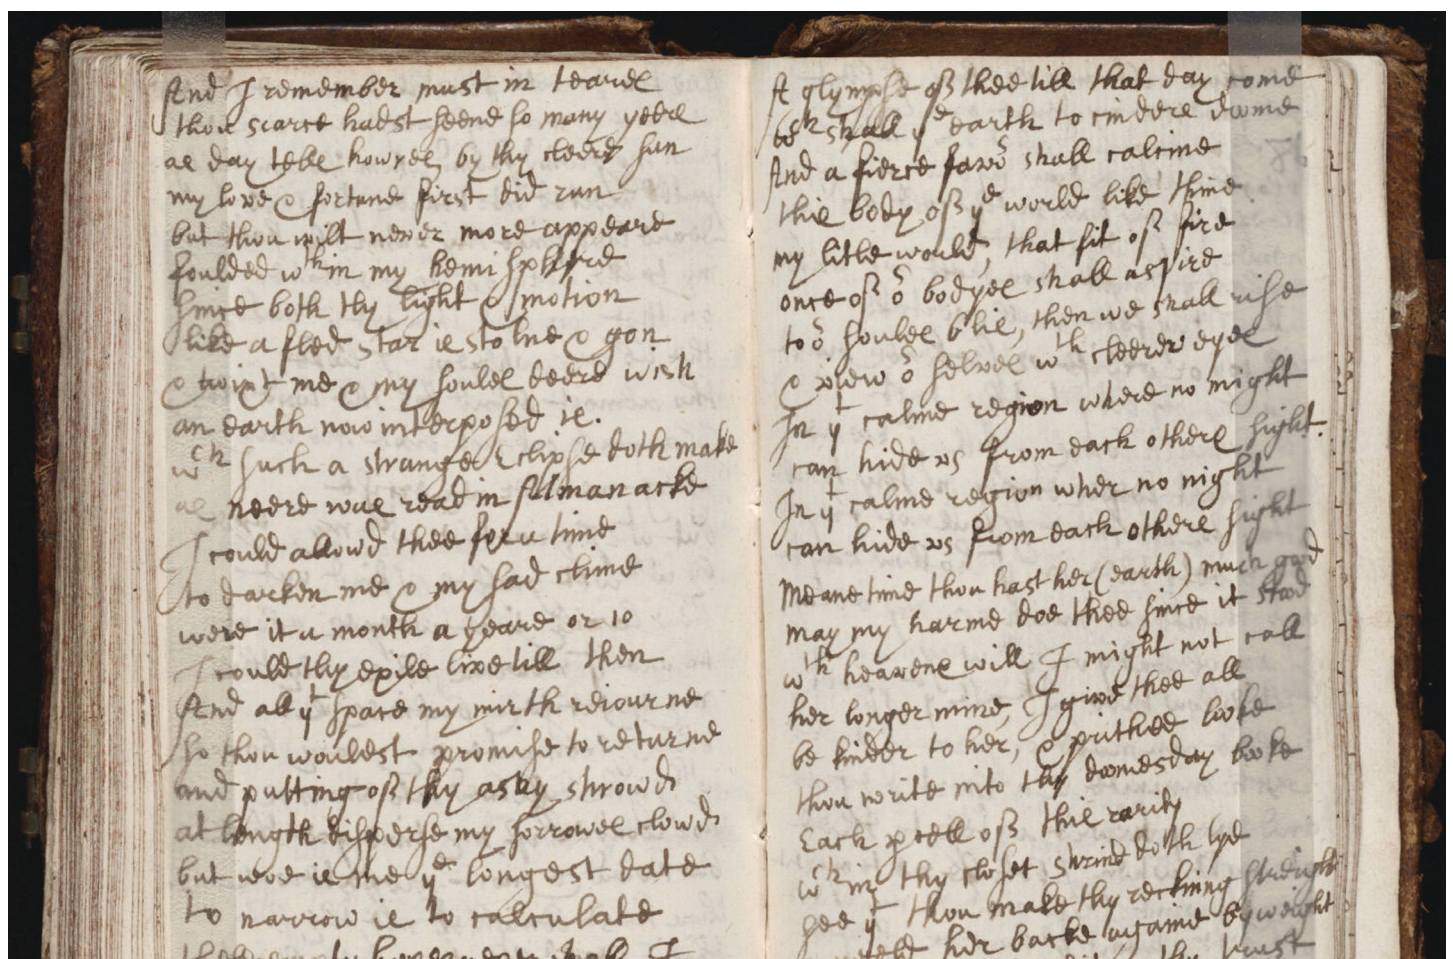 And I remember must in teares
thou scarce hadst seene so many yeeres
as day tells howres, by thy cleere sun
my love & fortune first did run
but thou wilt never more appeare
foulded wthin my hemispheare
since both thy light & motion
like a fled star is stolne & gon
& twixt me & my soules deere wish
an earth now interposed is.
wch such a strange Eclipse doth make
as neere was read in Almanacke
I could allowd thee for a time
to darken me & my sad clime
were it a month a yeare or 10
I could thy exile live till then
And all yt space my mirth rejourne
so thou wouldest promise to returne
and putting off thy ashy shrowd
at length disperse my sorrowes clowd
but woe is me ye longest date
to narrow is to calculate
A glympse of thee till that day come
wch shall ye earth to cinders doome
And a fierce favor shall calcine
this body of ye world like thine
my little world, that fit of fire
once off or bodyes shall aspire
to or soules blis, then we shall rise
& view or selves wth cleerer eyes
In yt calme region where no night
can hide vs from each others sight.
In yt calme region wher no night
can hide vs from each others sight
Meane time thou hast her (earth) much good
may my harme doe thee since it stood
wth heavens will I might not call
her longer mine, I give thee all
be kinder to her, & prithee looke
thou write into thy doomesday booke
Each pcell of this rarity
wch in thy closet shrine doth lye
see yt thou make thy reckning streight
her backe againe by weight